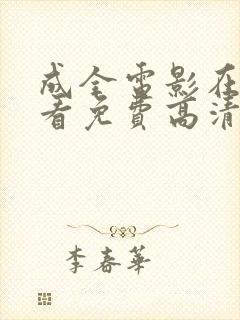 成全雷影在
看免费高清
李春華